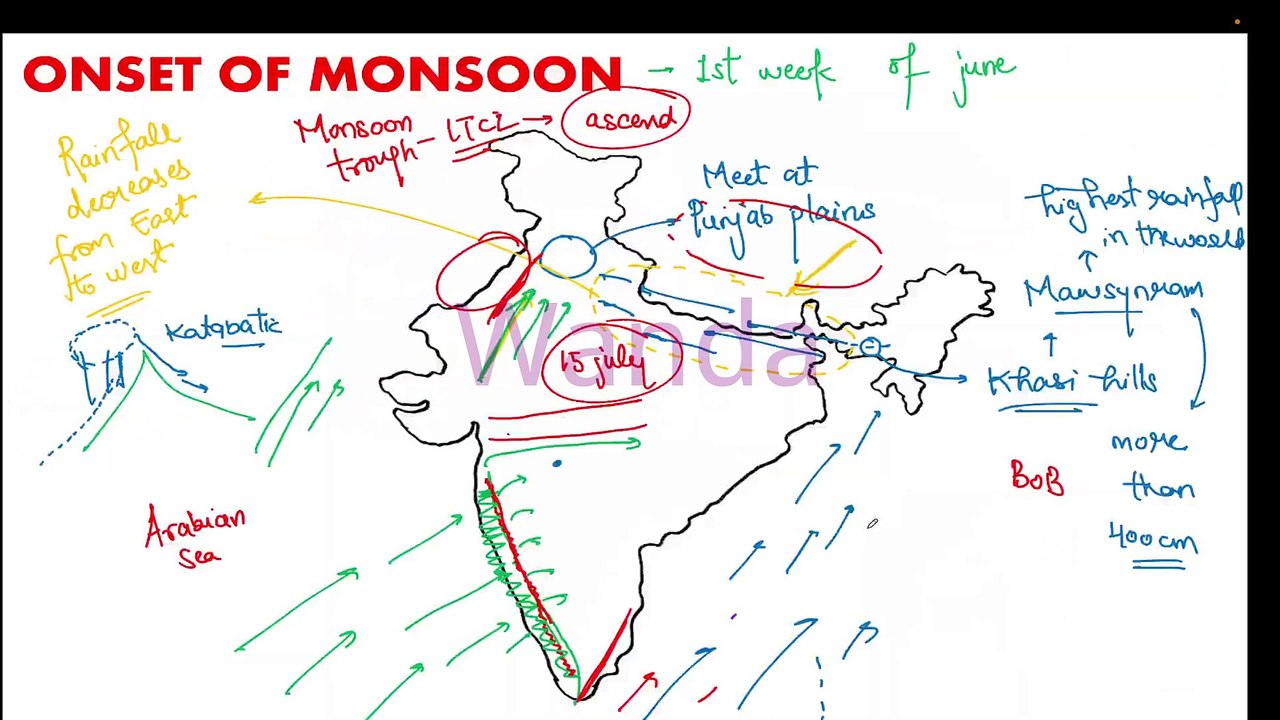 ONSET OF MONSOON → 1st week of june
Monsoon
trough - ITCZ → ascend
Rainfall
decreases
from East
to west
Meet at
Punjab plains
highest rainfall
in the world
Mawsynram
Khasi hills
more
than
400cm
Katabatic
15 july
Wanda
BOB
Arabian
Sea